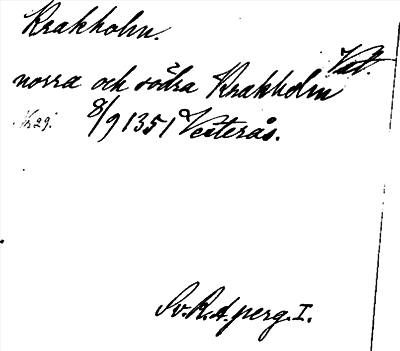 Krakholm.
Vat.
norra och södra Krakholm
Nr 29. 8/9 1351 Vesterås.
Sv. R. A. perg. I.